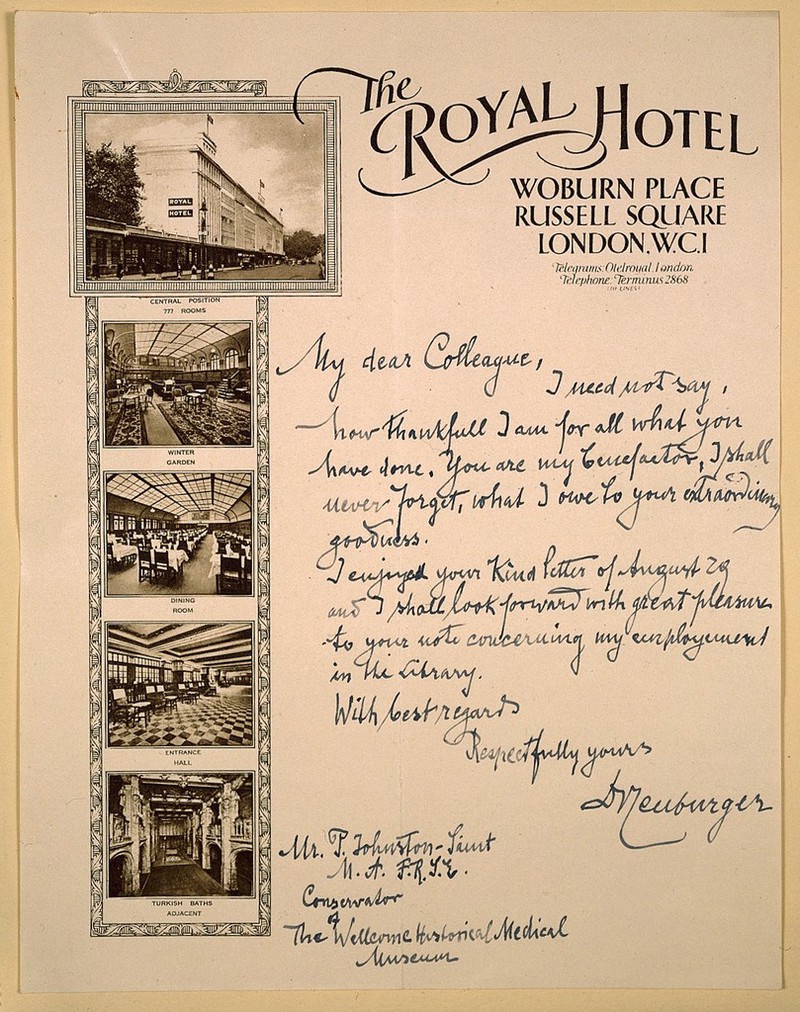 The
ROYAL HOTEL
WOBURN PLACE
RUSSELL SQUARE
LONDON, W.C.1
Telegrams: Otelroyal, London
Telephone: Terminus 2868
(10 LINES)
ROYAL
HOTEL
CENTRAL POSITION
777 ROOMS
WINTER
GARDEN
DINING
ROOM
ENTRANCE
HALL
TURKISH BATHS
ADJACENT
My dear Colleague,
I need not say,
how thankfull I am for all what you
have done. You are my benefactor, I shall
never forget, what I owe to your extraordinary
goodness.
I enjoyed your kind letter of August 29
and I shall look forward with great pleasure
to your note concerning my employement
in the Library.
With best regards
Respectfully yours
Neuburger
Mr. P. Johnston-Saint
M. A. F.R.S.E.
Conservator
of
The Wellcome Historical Medical
Museum